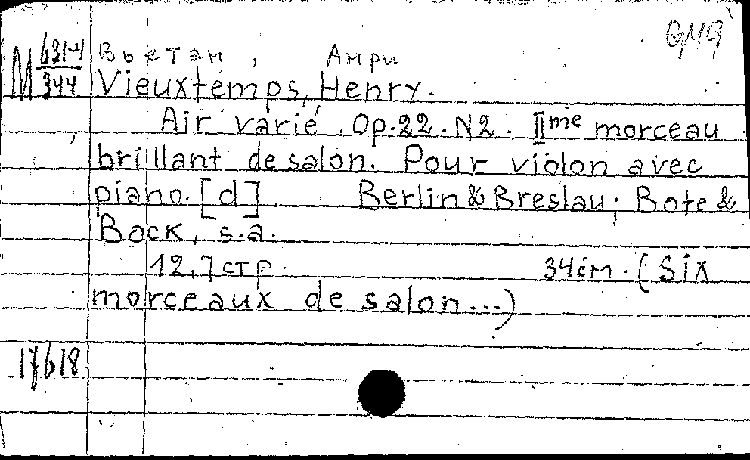 Вьетан, Анри
Vieuxtemps, Henry.
Air varié. Op.22. N2. IIme morceau
brillant de salon. Pour violon avec
piano. [d] Berlin & Breslau: Bote &
Bock, s.a.
12,7 стр. 34 cm. (Six
morceaux de salon...)
17618